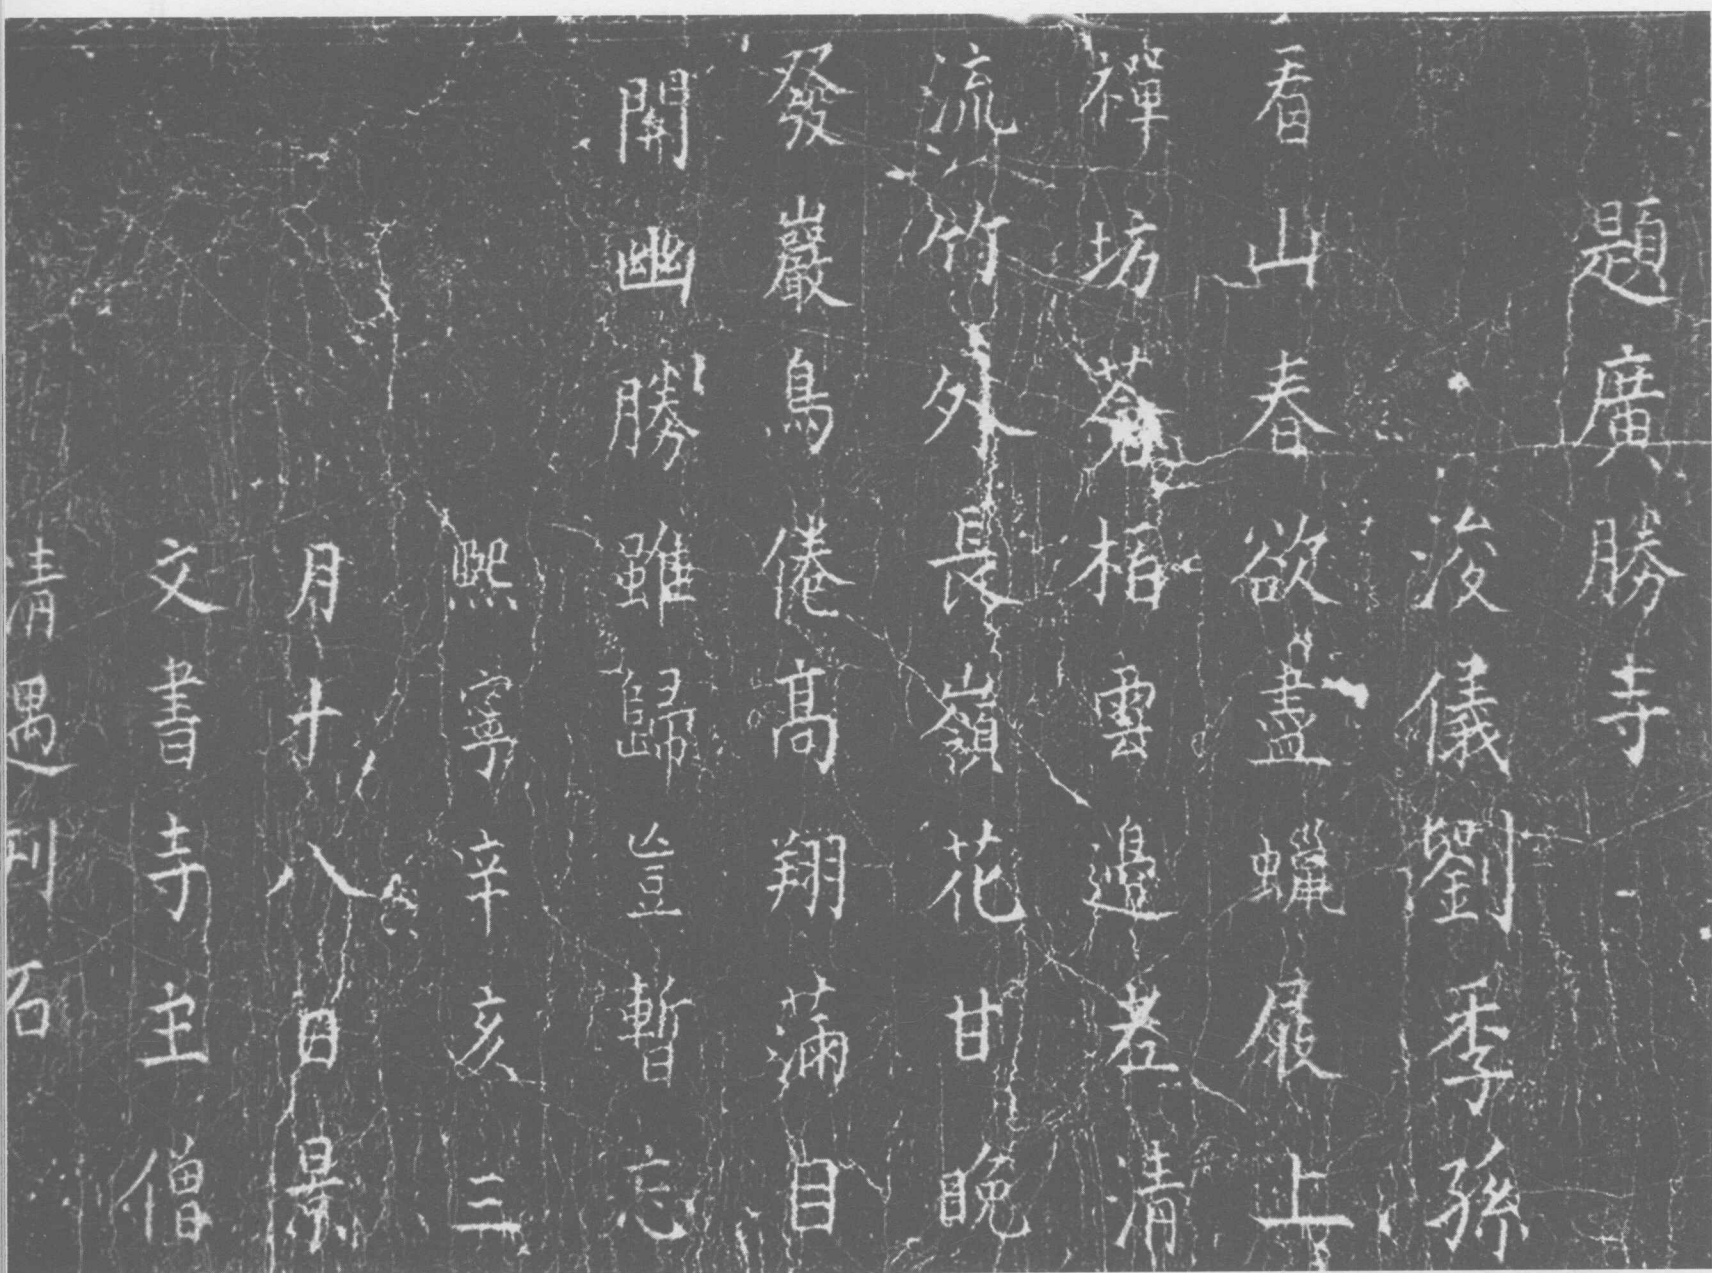 題廣勝寺
浚儀劉季孫
看山春欲盡蠟屐上
禪坊蒼栢雲邊老清
流竹外長嶺花甘晚
發巖鳥倦髙翔蒲目
開幽勝雖歸豈暫忘
熙寧辛亥三
月十八日景
文書寺主僧
清遇刊石